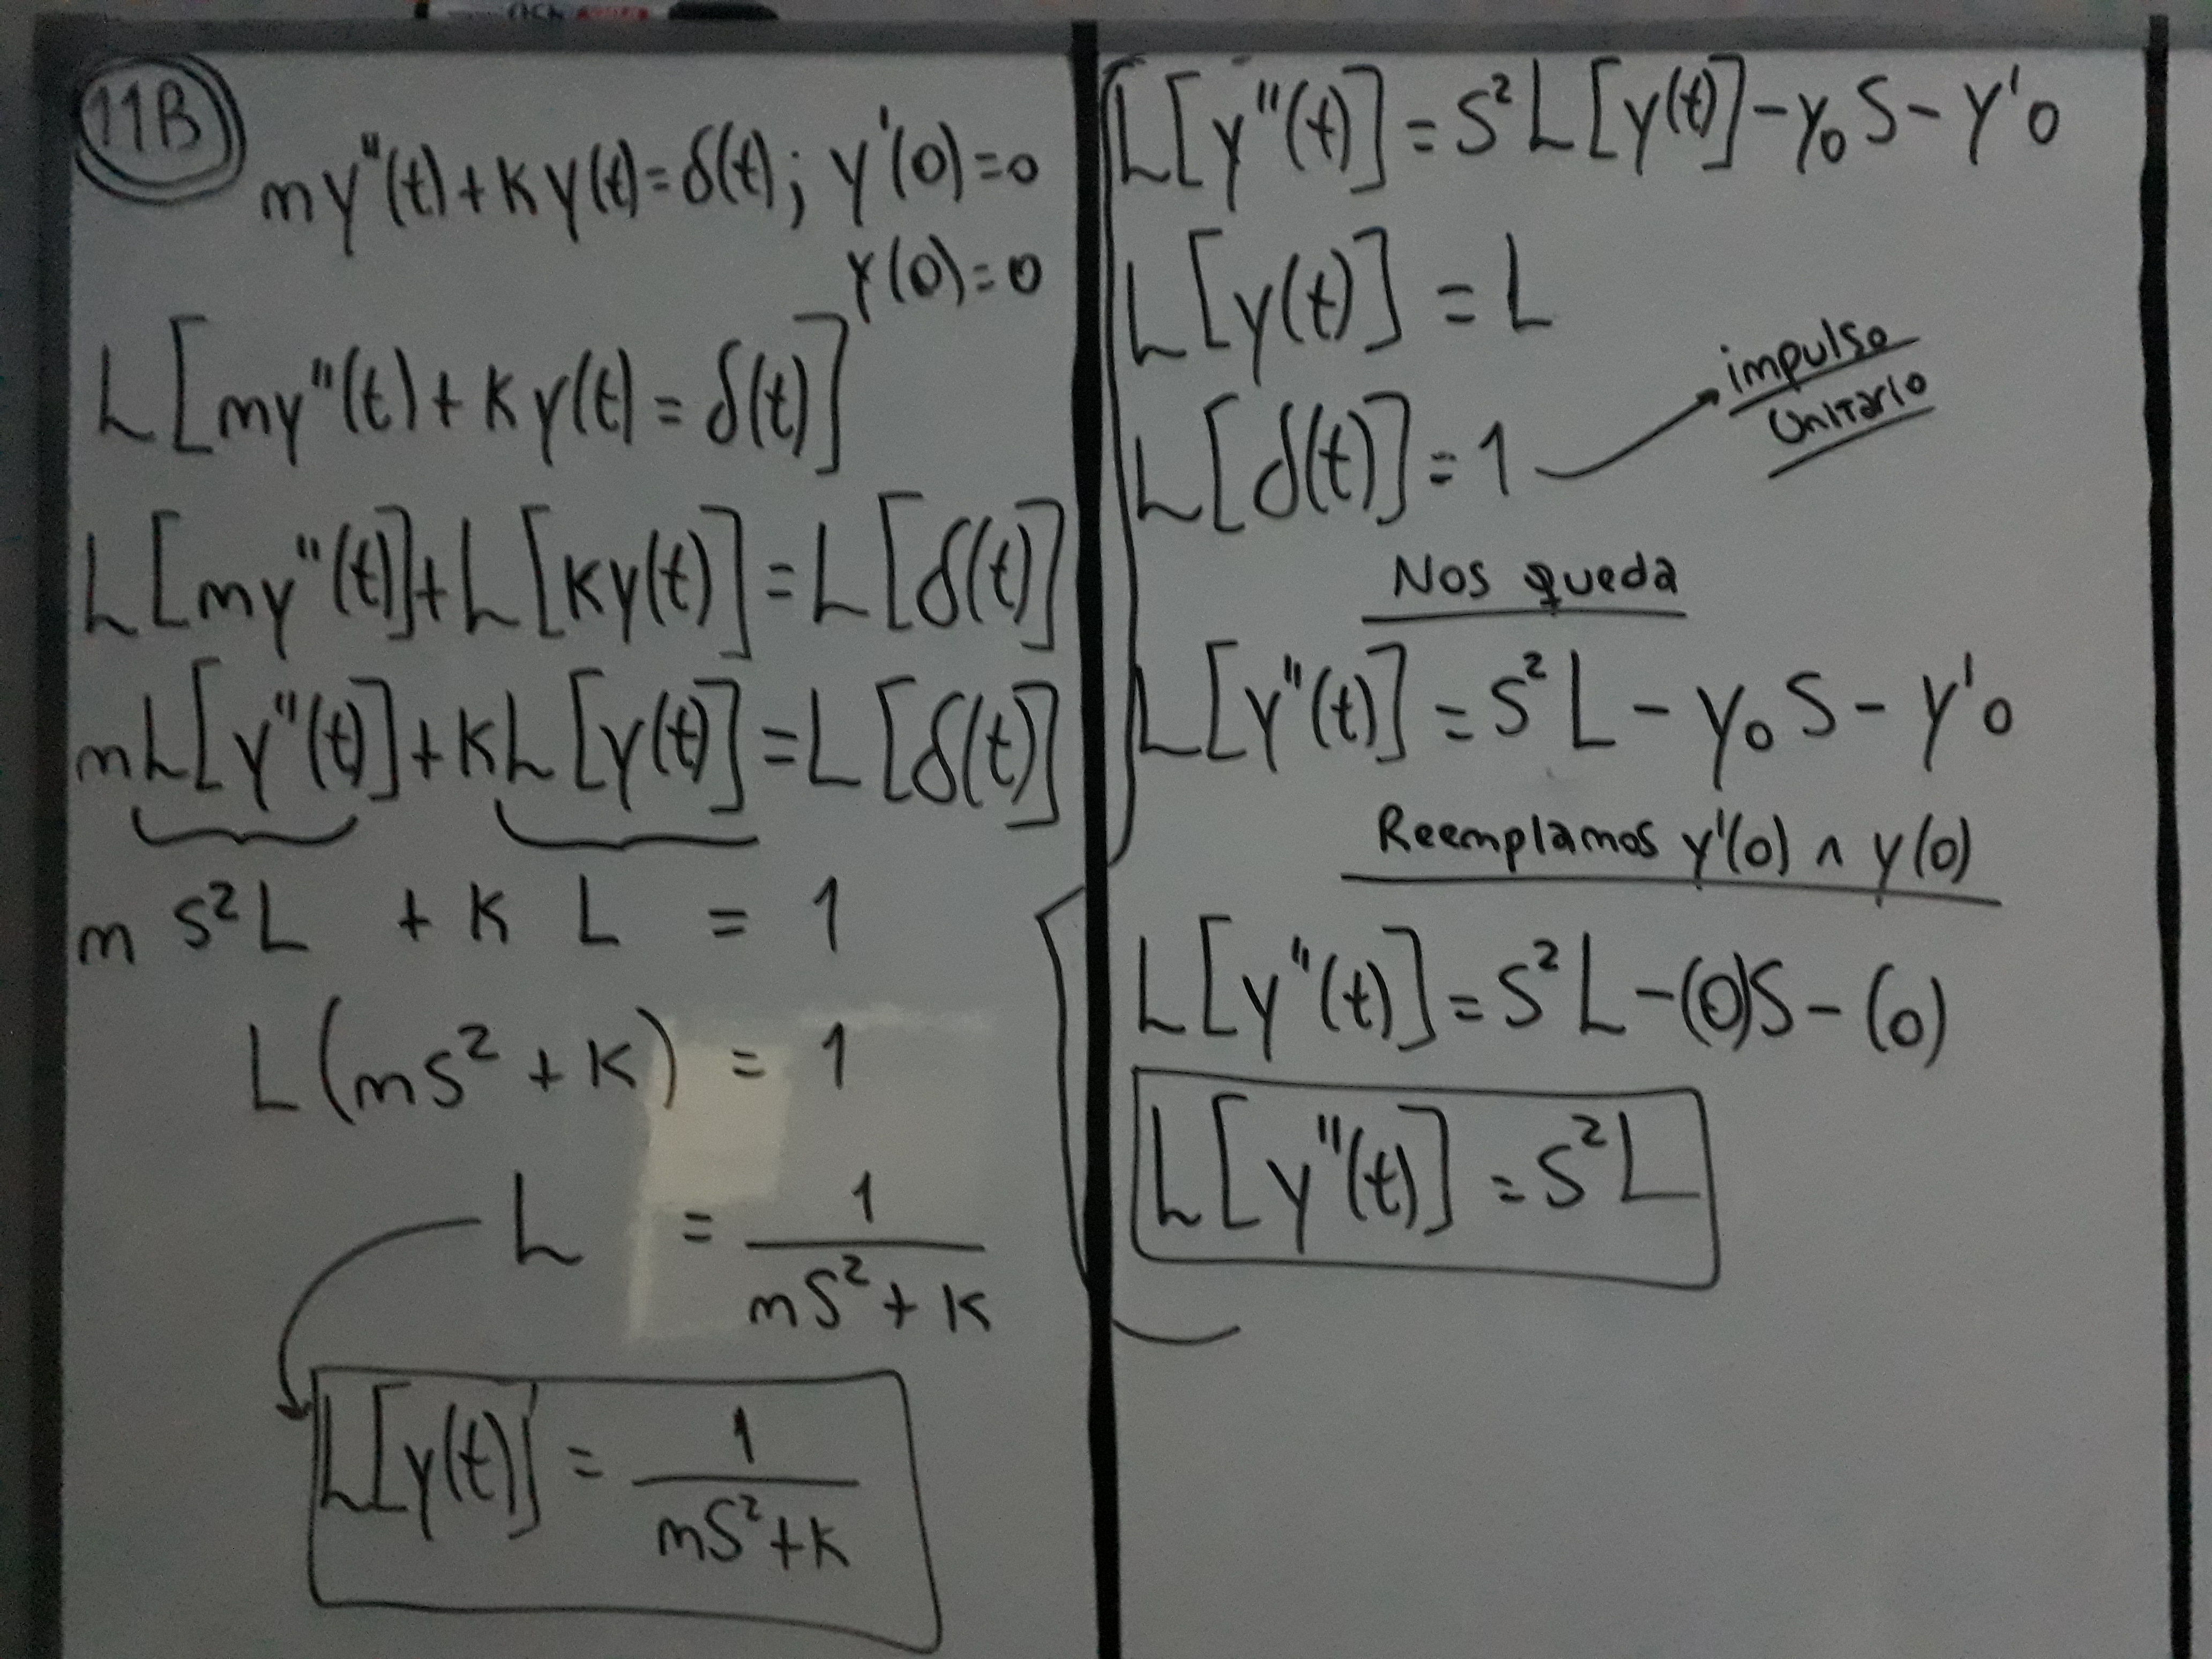 11B
my''(t)+Ky(t)=δ(t); y'(0)=0
y(0)=0
L[my''(t)+Ky(t)=δ(t)]
L[my''(t)]+L[Ky(t)]=L[δ(t)]
mL[y''(t)]+KL[y(t)]=L[δ(t)]
m S²L + K L = 1
L(mS²+K) = 1
L = 1/(mS²+K)
L[y(t)] = 1/(mS²+K)
L[y''(t)]=S²L[y(t)]-y₀S-y'0
L[y(t)]=L
L[δ(t)]=1
impulso
Unitario
Nos queda
L[y''(t)]=S²L-y₀S-y'0
Reemplamos y'(0) ∧ y(0)
L[y''(t)]=S²L-(0)S-(0)
L[y''(t)]=S²L